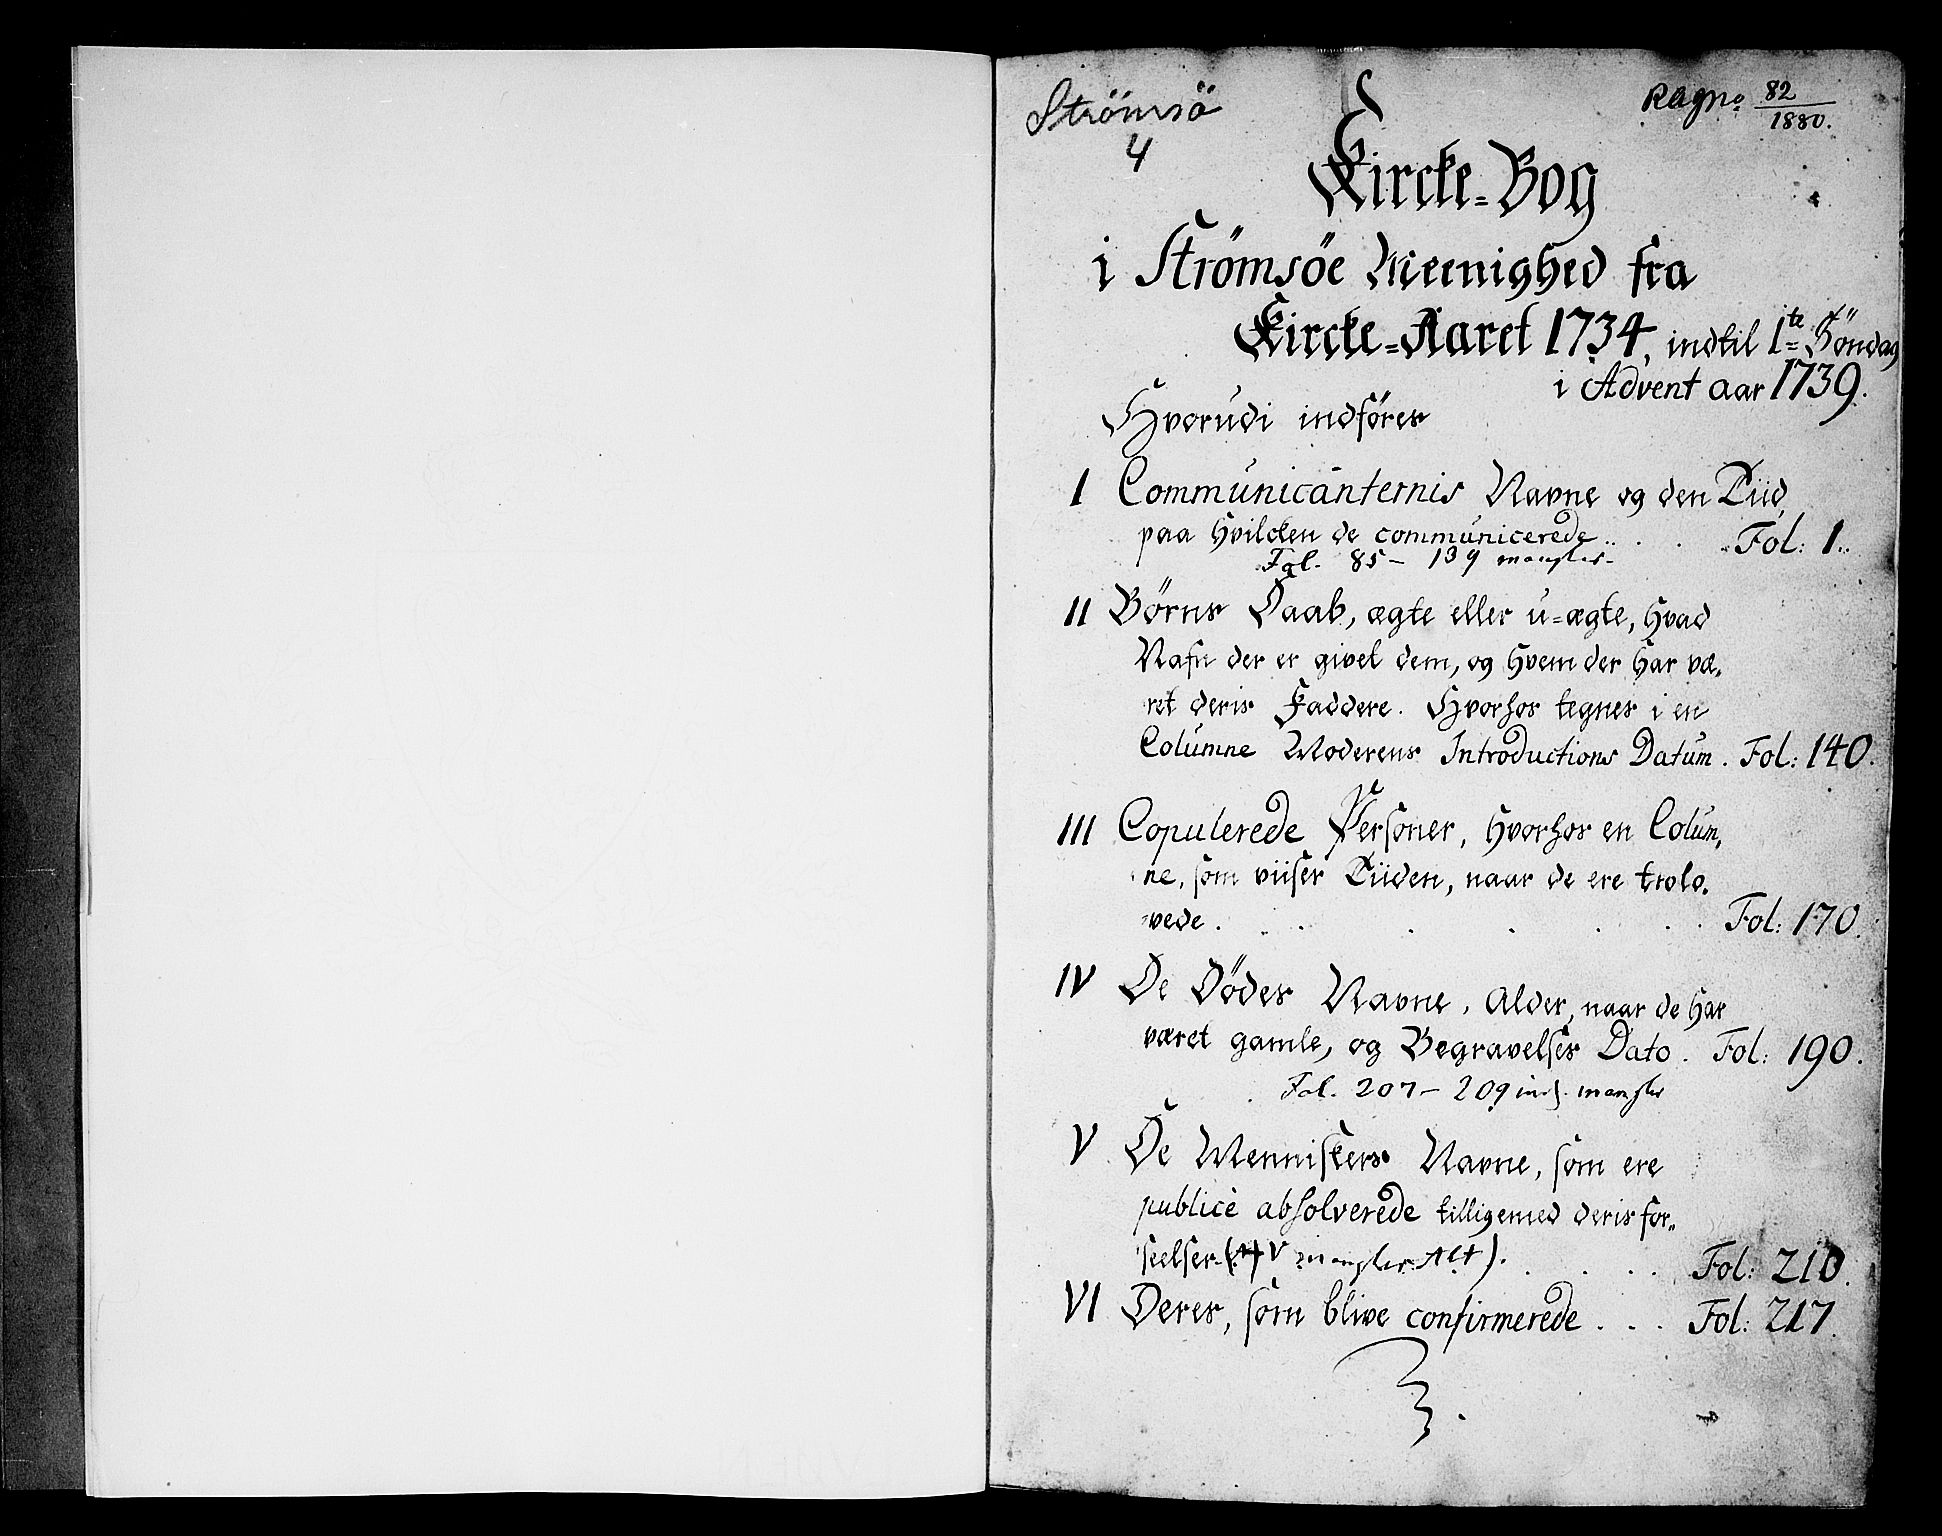 Strömsö
4
82
1880.
Kircke=Bog
i Strømsøe Meenighed fra
Kircke=Aaret 1734, indtil 1te Søndag
i Advent aar 1739.
Hvorudi indføres
I Communicanternis Navne og den Tiid,
paa hvilcken de communicerede . . . . Fol: 1.
Fol. 85 – 139 mangler.
II Børns Daab, ægte eller u=ægte, hvad
Nafn der er givet dem, og hvem der har væ,
ret deris Faddere. Hvorhos tegnes i en
Columne Moderens Introductions Datum. Fol: 140.
III Copulerede Personer, hvorhos en Colum,
ne, som viiser Tiiden, naar de ere trolo,
vede . . . . . . . . Fol: 170.
IV De Dødes Navne, Alder, naar de har
været gamle, og Begravelses Dato. Fol: 190.
Fol. 207 – 209 incl. mangler
V De Menniskers Navne, som ere
publicè absolverede tilligemed deris for,,
seelser. V mangler Alt). . . . . Fol: 210.
VI Deres, som blive confirmerede . . . Fol: 217.